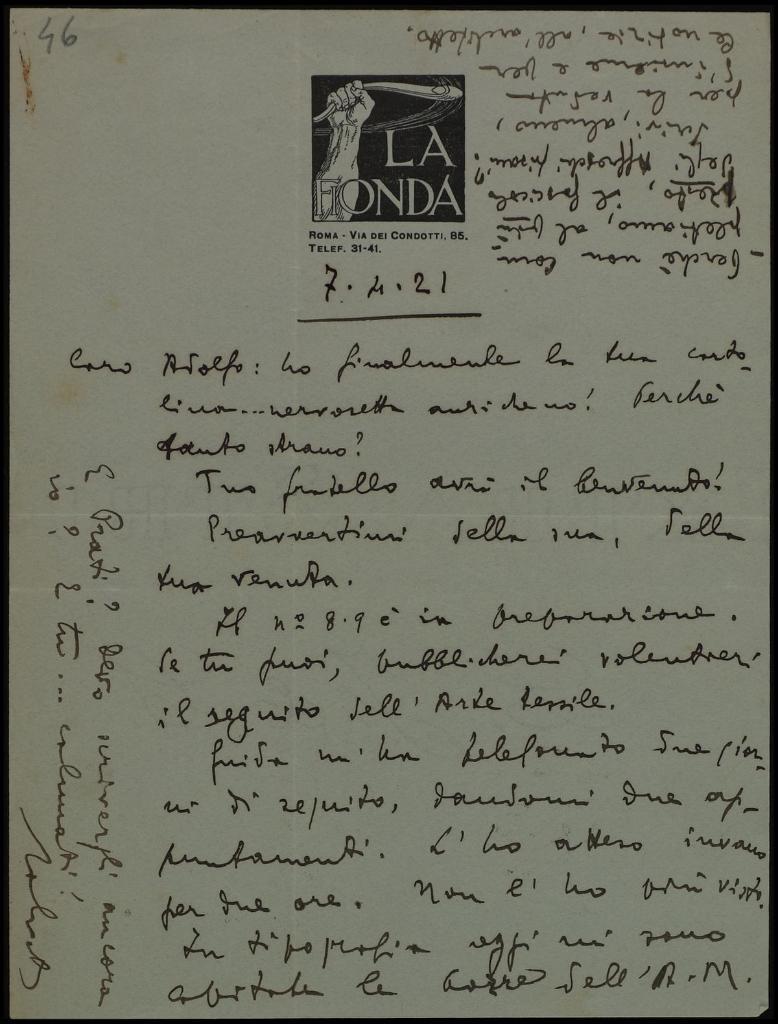 46
LA
FIONDA
ROMA - VIA DEI CONDOTTI, 85.
TELEF. 31-41.
7. 4. 21
Caro Adolfo: ho finalmente la tua carto-
lina... nervosetta anziché no! Perché
tanto strano?
Tuo fratello avrà il benvenuto!
Preavvertimi della sua, della
tua venuta.
Il nº 8.9 è in preparazione.
Se tu puoi, pubblicherei volentieri
il seguito dell'Arte tessile.
Guido m'ha telefonato due gior-
ni di seguito, dandomi due ap-
puntamenti. L'ho atteso invano
per due ore. Non l'ho più visto.
In tipografia oggi mi sono
capitate le bozze dell'A.M.
E Prati? Devo scrivergli ancora
io? E tu... calmati!
Perchè non com-
pletiamo, al più
presto, il fascicolo
degli Affreschi pisani?
Scrivi, almeno,
per la veduta
d'insieme e per
le notizie, all'architetto.